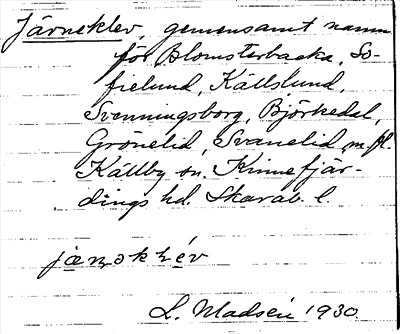 Järneklev, gemensamt namn
för Blomsterbacka, So-
fielund, Källslund,
Svenningsborg, Björkedal,
Grönelid, Svanelid m. fl.
Källby sn. Kinnefjär-
dings hd. Skarab. l.
L. Madsén 1930.